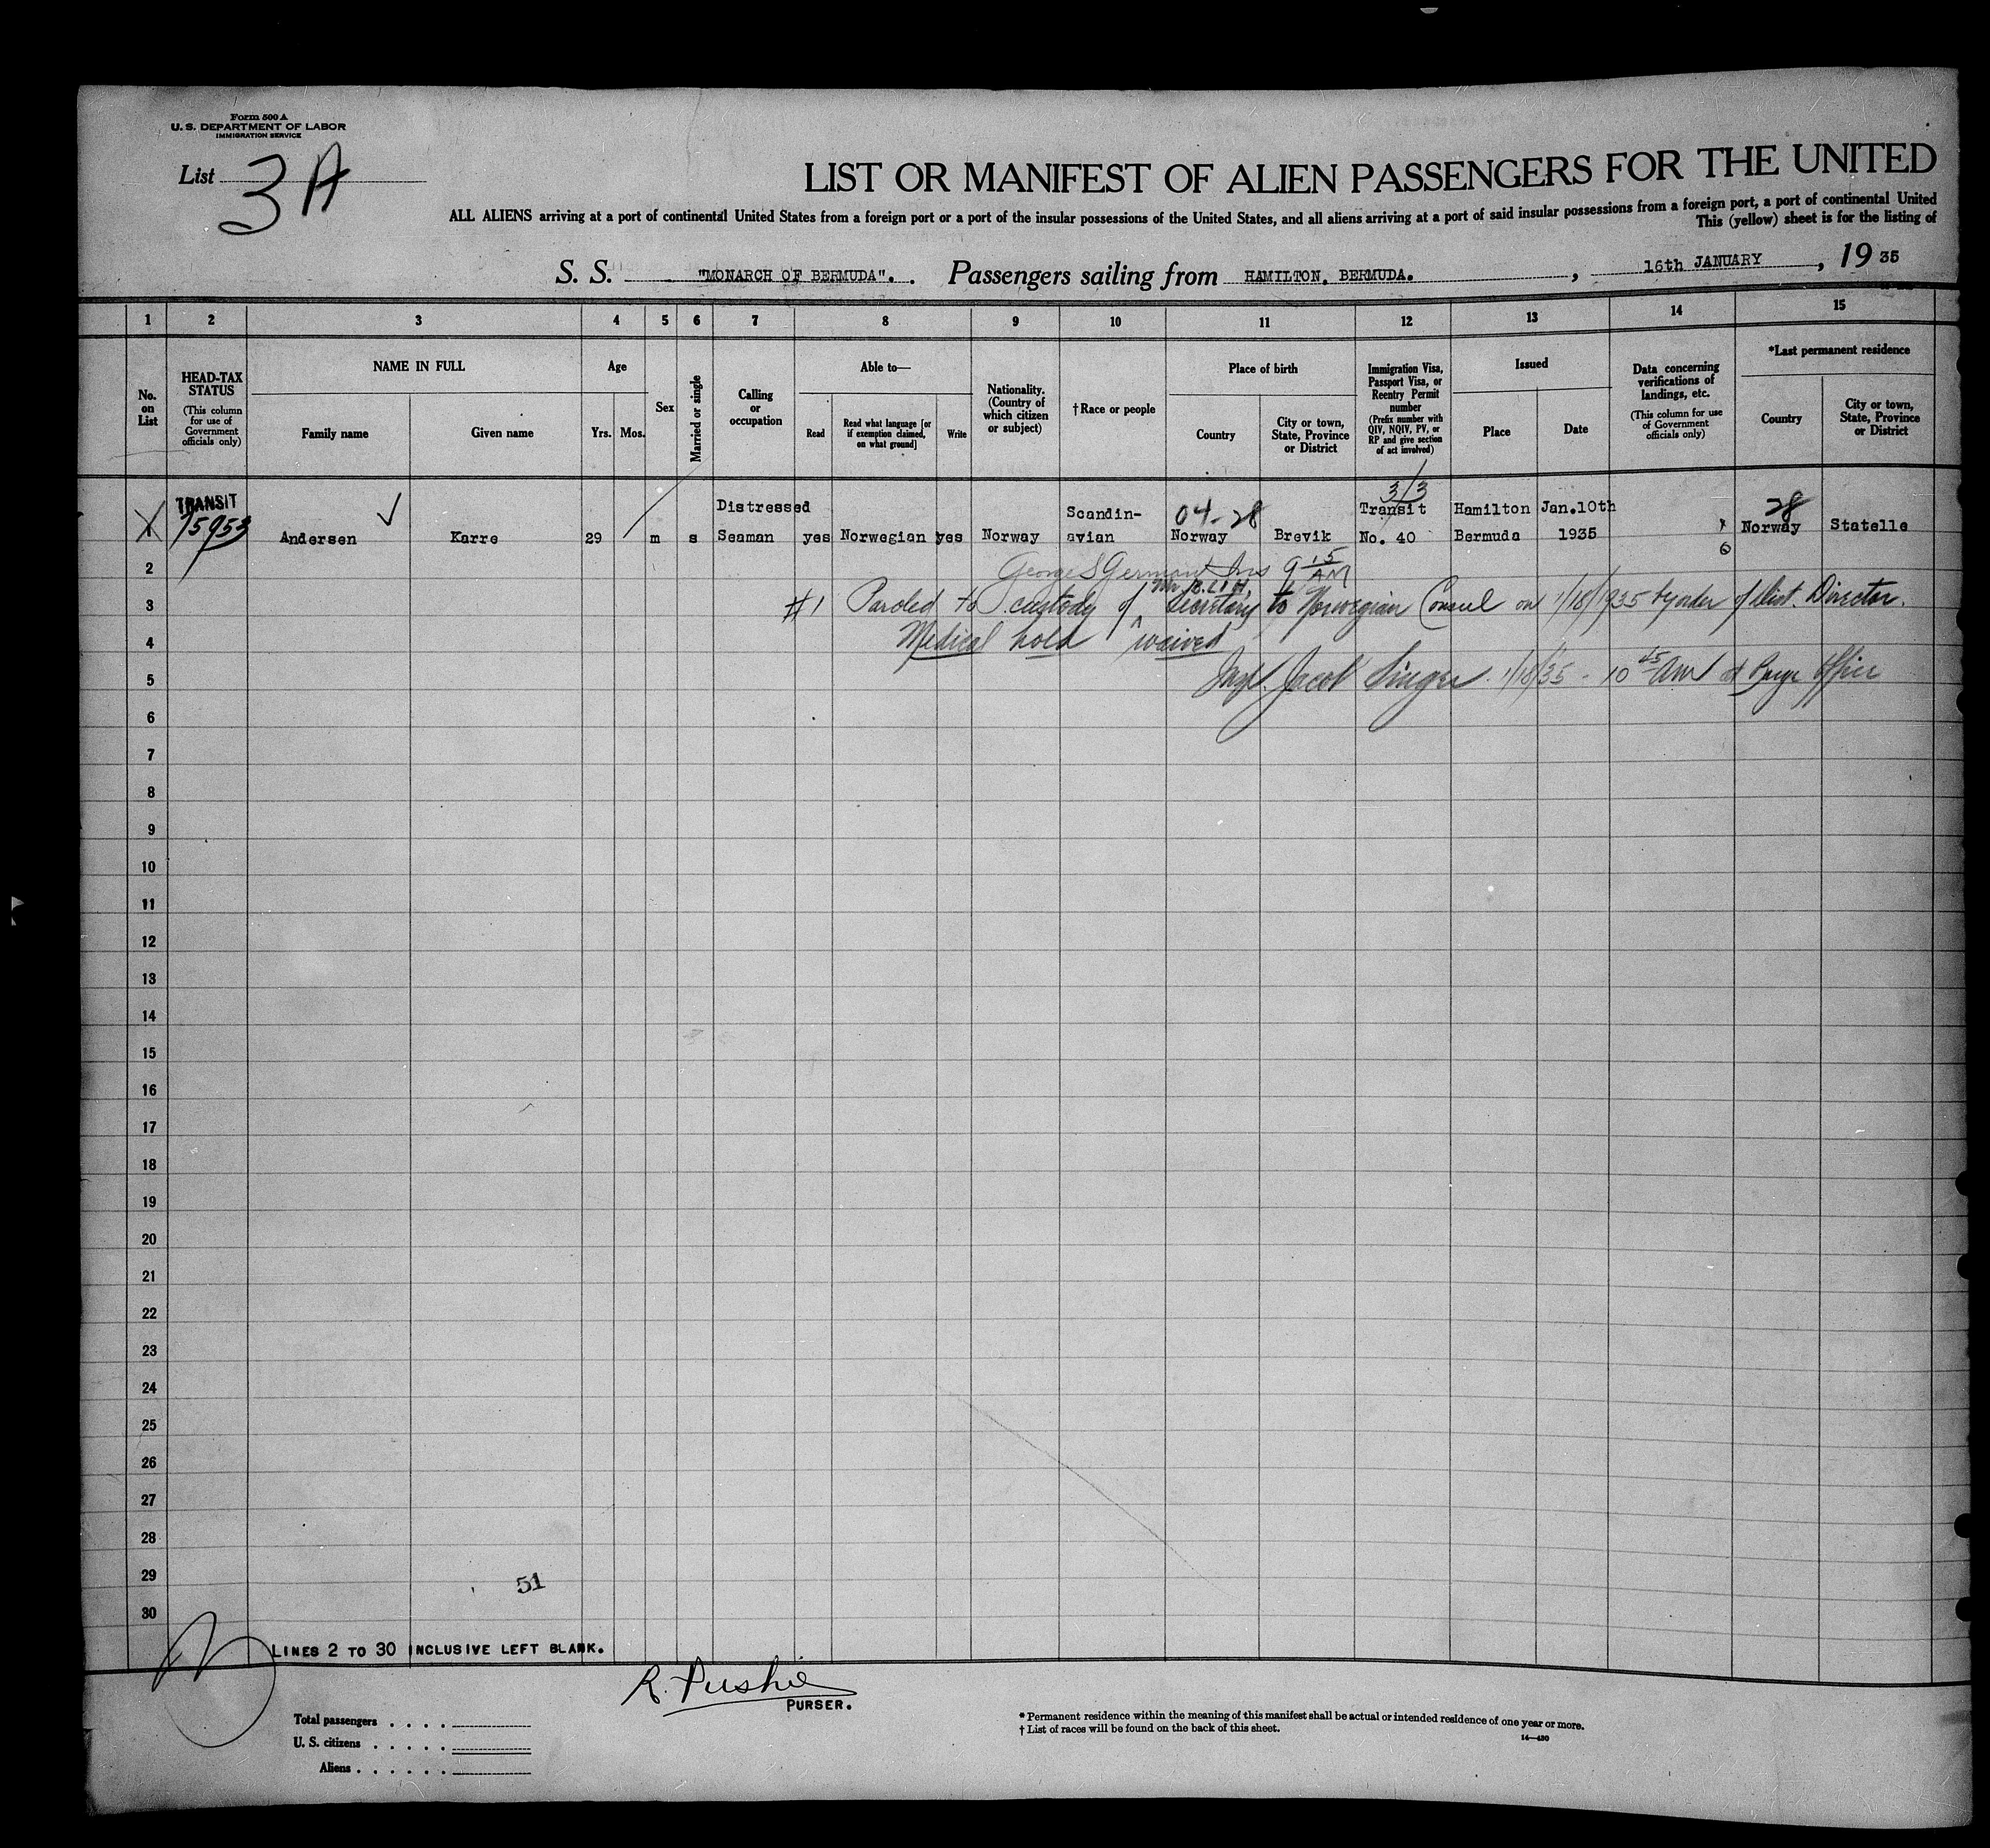 Form 500 A
U. S. DEPARTMENT OF LABOR
IMMIGRATION SERVICE
List 3A
LIST OR MANIFEST OF ALIEN PASSENGERS FOR THE UNITED
ALL ALIENS arriving at a port of continental United States from a foreign port or a port of the insular possessions of the United States, and all aliens arriving at a port of said insular possessions from a foreign port, a port of continental United
This (yellow) sheet is for the listing of
S. S. "MONARCH OF BERMUDA". . Passengers sailing from HAMILTON, BERMUDA. , 16th JANUARY , 19 35
1 2 3 4 5 6 7 8 9 10 11 12 13 14 15
No. on List
HEAD-TAX STATUS
(This column for use of Government officials only)
NAME IN FULL
Family name
Given name
Age
Yrs. Mos.
Sex
Married or single
Calling or occupation
Able to—
Read
Read what language [or if exemption claimed, on what ground]
Write
Nationality. (Country of which citizen or subject)
†Race or people
Place of birth
Country
City or town, State, Province or District
Immigration Visa, Passport Visa, or Reentry Permit number
(Prefix number with QIV, NQIV, PV, or RP and give section of act involved)
Issued
Place
Date
Data concerning verifications of landings, etc.
(This column for use of Government officials only)
*Last permanent residence
Country
City or town, State, Province or District
3/3
TRANSIT Distressed Scandin- 04-28 Transit Hamilton Jan.10th 28
1 15953 Andersen Karre 29 m s Seaman yes Norwegian yes Norway avian Norway Brevik No. 40 Bermuda 1935 Norway Statelle
2 George S German Ins 9 15 AM
3 #1 Paroled to custody of Mr B. Lih, Secretary to Norwegian Consul on 1/18/1935 by order of Dist. Director.
4 Medical hold waived
5 Insp. Jacob Singer 1/18/35 - 10 45 AM at Barge Office
6
7
8
9
10
11
12
13
14
15
16
17
18
19
20
21
22
23
24
25
26
27
28
29 51
30
LINES 2 TO 30 INCLUSIVE LEFT BLANK.
R. Pushie
PURSER.
Total passengers . . . .
U. S. citizens . . . . .
Aliens . . . . . .
* Permanent residence within the meaning of this manifest shall be actual or intended residence of one year or more.
† List of races will be found on the back of this sheet.
14—430